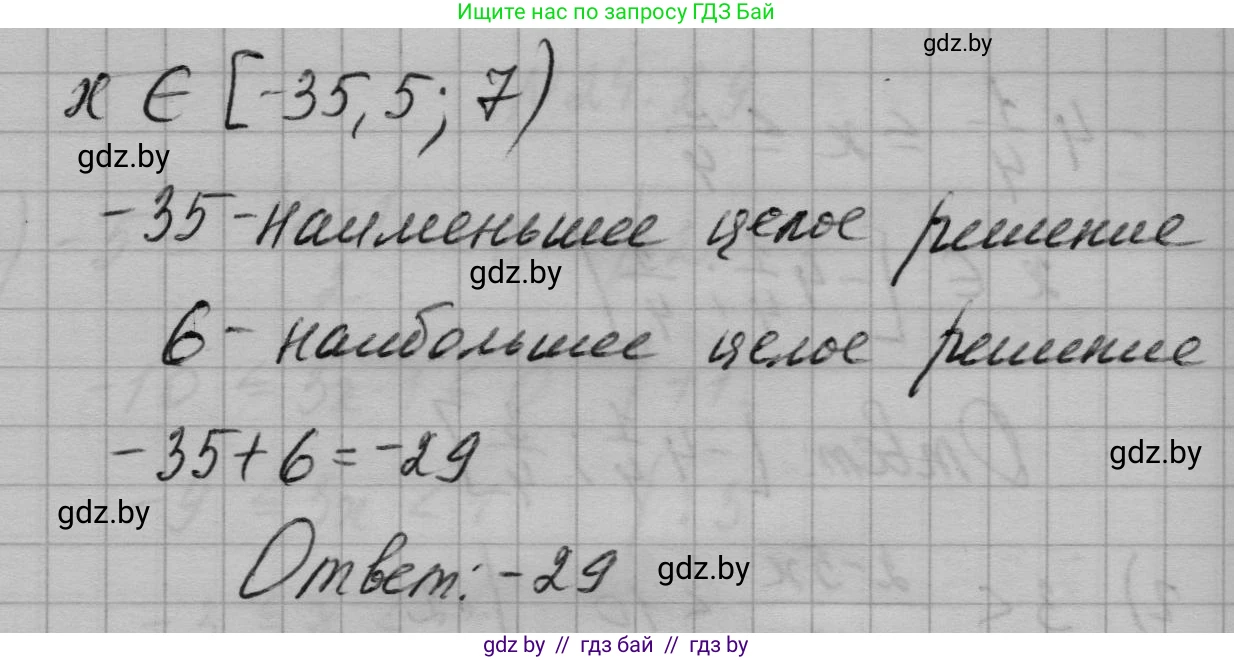 Ищите нас по запросу ГДЗ Бай
gdz.by
x ∈ [-35,5; 7)
gdz.by
-35 - наименьшее целое решение
gdz.by
6 - наибольшее целое решение
-35 + 6 = -29
gdz.by
gdz.by
Ответ: -29
gdz.by
gdz.by // гдз бай // гдз by